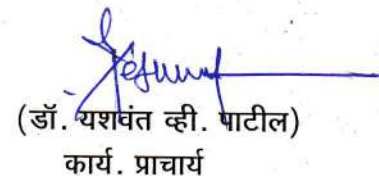 (डॉ. यशवंत व्ही. पाटील)
कार्य. प्राचार्य